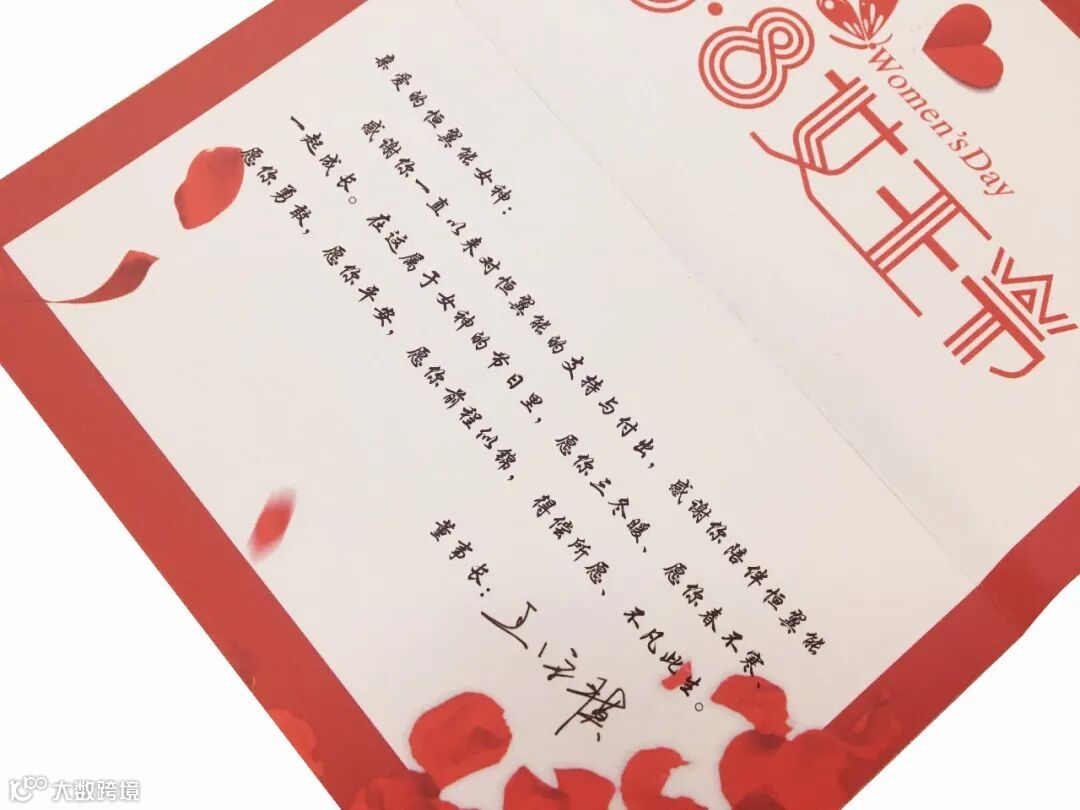 ·8
Women's Day
女王节
亲爱的恒翼能女神：
感谢你一直以来对恒翼能的支持与付出，感谢你陪伴恒翼能
一起成长。在这属于女神的节日里，愿你三冬暖、愿你春不寒、
愿你勇敢，愿你平安，愿你前程似锦，得偿所愿、不凡此生。
董事长：
大数跨境